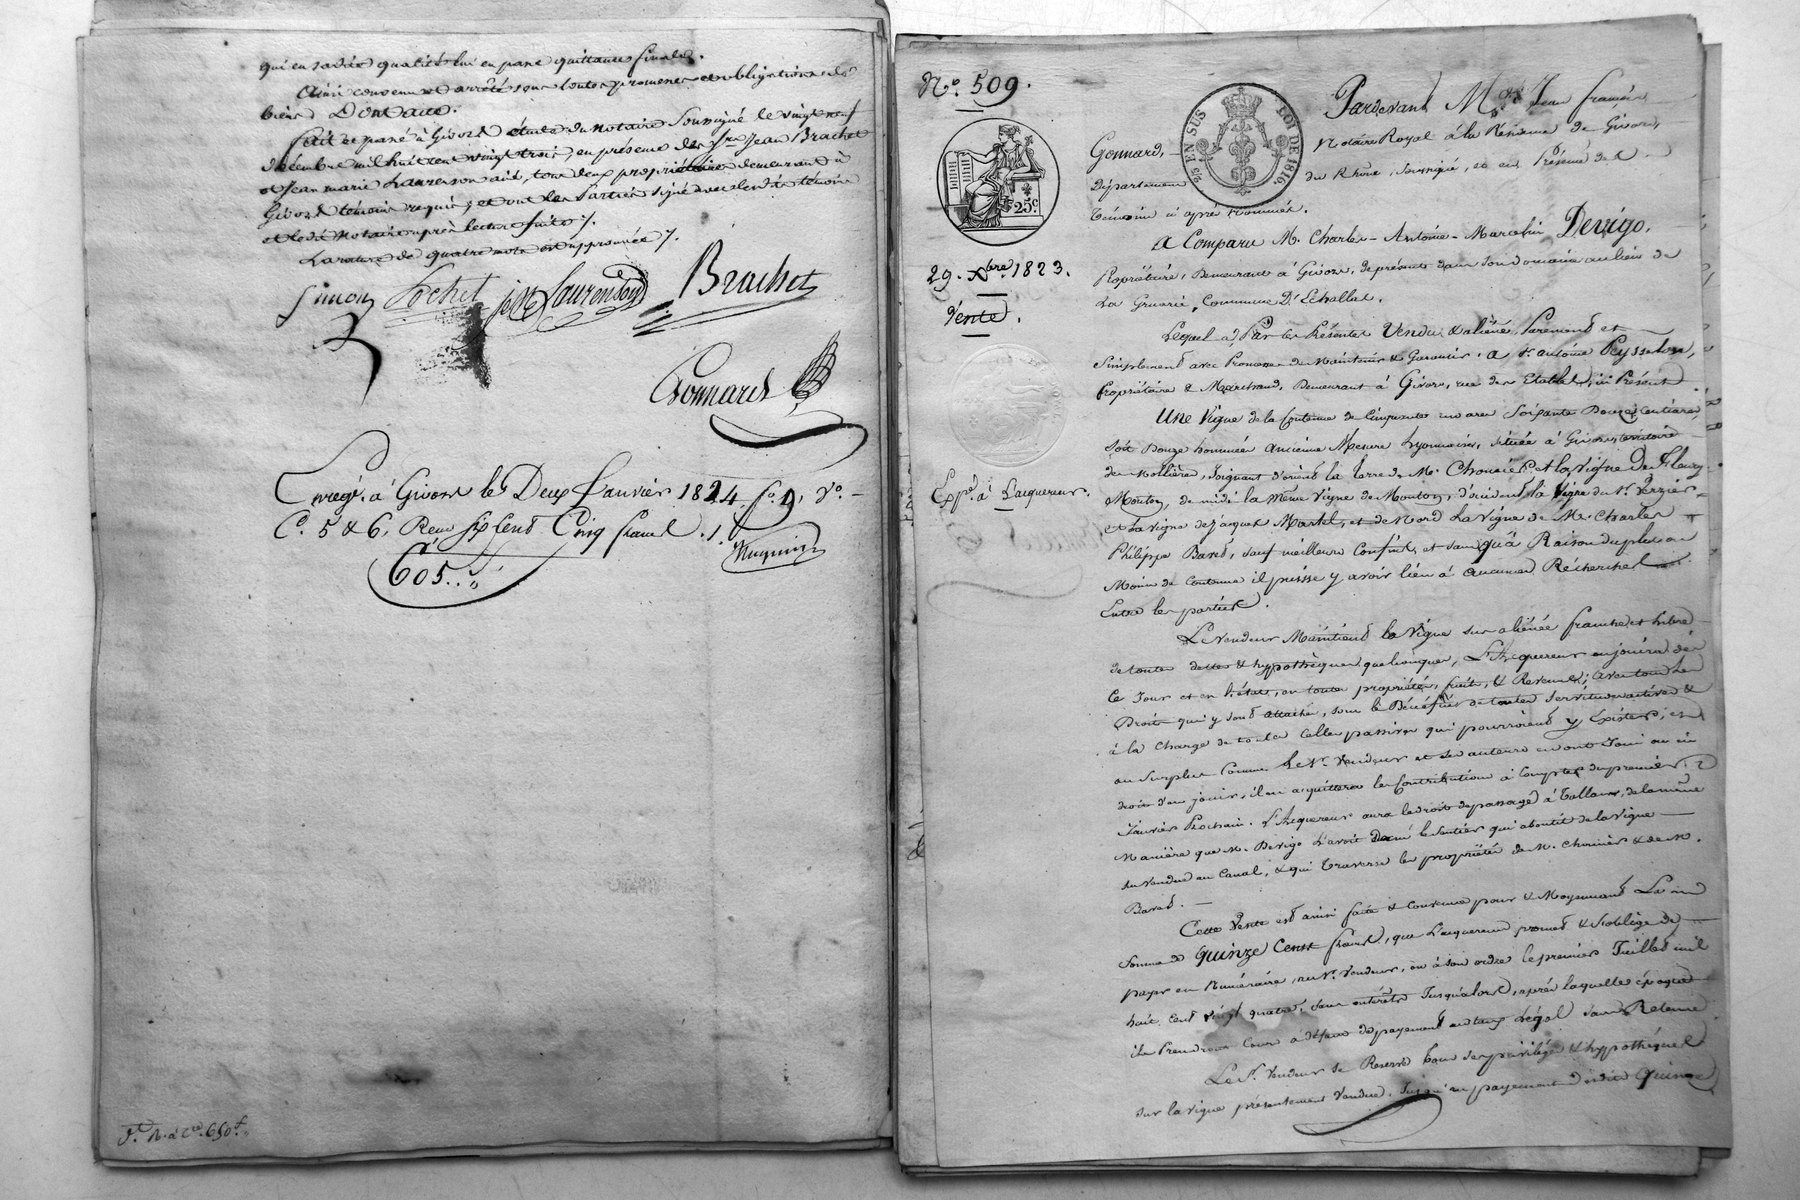 qui en sadite qualité lui en passe quittance finale.
Ainsi convenu et arrêté sous toutes promesses et obligations de
biens Dont acte.
fait et passé à Givors étude du notaire soussigné le vingt neuf
décembre mil huit cent vingt trois, en présence des srs Jean Brachet
et Jean marie Laurenson ainé, tous deux propriétaires demeurant à
Givors témoins requis; et ont les parties signé avec lesdits témoins
et ledit notaire après lecture faite /.
La rature de quatre mots est approuvée /.
Simon Pochet jm Laurenson Brachet
Gonnard
Enregé. à Givors le Deux Janvier 1824 fo. 9, vo.
C. 5 & 6, Reçu six cent Cinq francs
605..
No. 509.
25c
EN SUS
LOI DE 1816
29. Xbre. 1823.
Vente.
Expé. à l'acquereur.
Pardevant Me. Jean françois
Gonnard, Notaire Royal à la Résidence de Givors,
Département du Rhône, soussigné, et en Présence des
témoins ci après nommés.
A Comparu M. Charles-Antoine-Marcelin Devigo,
Propriétaire, Demeurant à Givors, de présent dans son domaine au lieu de
La Gruerie, Commune D'Echallat.
Lequel a, Par ces Présentes Vendu & aliéné, Purement et
Simplement avec Promesse de Maintenir & Garantir. a sr. antoine Peysselon,
Propriétaire & Marchand, Demeurant à Givors, rue des Etables, ici Présent
Une Vigne de la Contenue de Cinquante un ares Soixante Douze Centiares,
Soit Douze hommées Ancienne Mesure Lyonnaise, située à Givors, territoire
de Mollière, Joignant d'orient la terre de M. Chonier & la Vigne de fleury
Mouton, de midi la même Vigne de Mouton, d'occident la Vigne du sr. Verzier
et la Vigne de jaques Martel, et de Nord La Vigne de M. Charles
Philippe Baret, sauf meilleurs Confins, et sans qu'à Raison du plus ou
Moins de Contenue il puisse y avoir lieu à aucunes Recherches
Entre les parties.
Le Vendeur Maintient la Vigne sus aliénée franche et Libre
de toutes dettes & hypothèques quelconques, L'Acquereur en jouira dès
Ce Jour et en l'état, en toute propriété, fruits, & Revenus; avec tous les
Droits qui y sont attachés, sous le Bénéfice de toutes Servitudes actives &
à la Charge de toutes Celles passives qui pourroient y Exister; et
au Surplus Comme le sr. Vendeur et ses auteurs en ont Joui ou eu
droit d'en jouir, il en acquittera les Contributions à Compter du premier
Janvier Prochain. L'Acquereur aura le droit de passage à Tallons, de la même
Manière que M. Devigo L'avoit Dans le Sentier qui aboutit de la Vigne
du Vendue au Canal, & qui Traverse les propriétés de M. Chonier & de M.
Baret.
Cette Vente est ainsi faite & Convenue pour & Moyennant La
Somme de Quinze Cents francs, que L'acquereur promet & S'oblige de
payer en Numéraire, au sr. Vendeur, ou à son ordre le premier Juillet mil
huit Cent vingt quatre, sans intérêts Jusqu'alors, après laquelle époque
ils Prendront Cours à défaut de payement au taux Légal sans Retenue.
Le sr. Vendeur se Reserve Tous ses privilége & hypothéques
sur la vigne présentement Vendue. Jusqu'au payement desdits Quinze